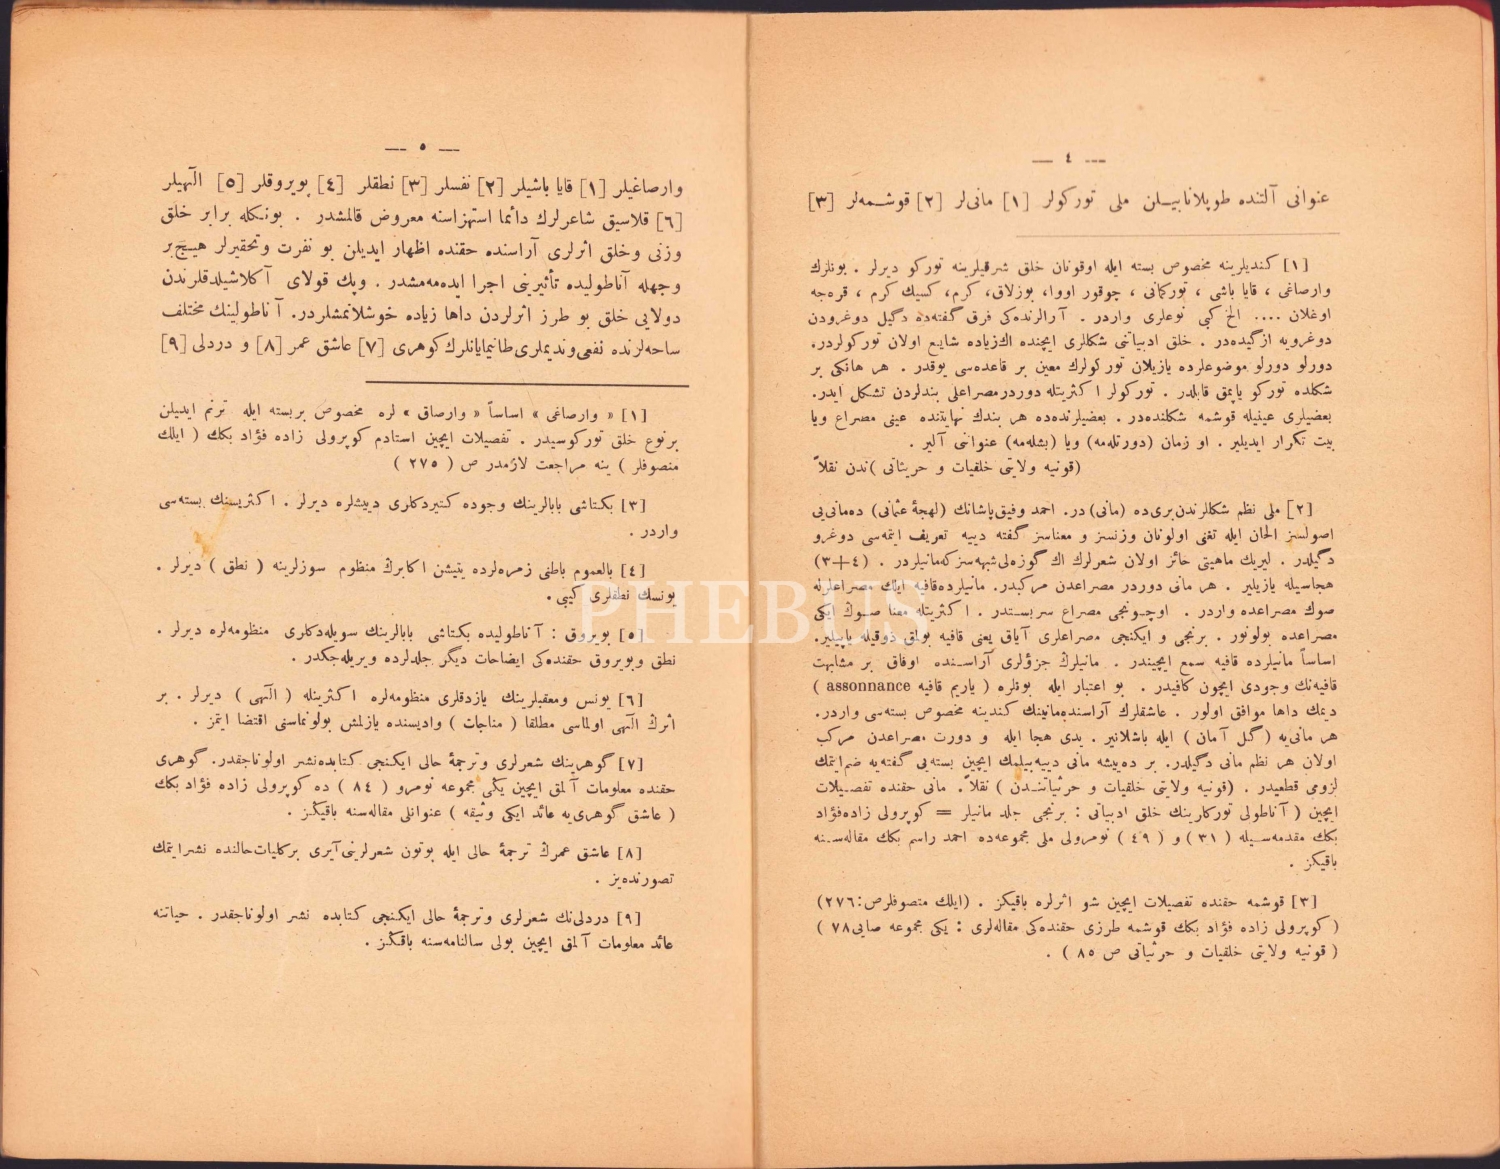 — ٤ —
عنوانی آلتنده طوپلانابیلن ملی تورکولر [١] مانی‌لر [٢] قوشمه‌لر [٣]
[١] کندیلرینه مخصوص بسته ایله اوقونان خلق شرقیلرینه تورکو دیرلر . بونلرك
وارصاغی ، قایا باشی ، تورکمانی ، چوقور اووا، بوزلاق، کرم، کسیك کرم ، قره‌جه
اوغلان .... الخ کبی نوعلری واردر . آرالرنده‌کی فرق گفته‌ده دگیل دوغرودن
دوغرویه ازگیده‌در . خلق ادبیاتنی شکللری ایچنده اك‌زیاده شایع اولان تورکولردر.
دورلو دورلو موضوعلرده یازیلان تورکولرك معین بر قاعده‌سی یوقدر . هر هانکی بر
شکلده تورکو یاپمق قابلدر . تورکولر اکثریتله دوردر مصراعلی بندلردن تشکل ایدر.
بعضیلری عینیله قوشمه شکلنده‌در . بعضیلرنده‌ده هر بندك نهایتنده عینی مصراع ویا
بیت تکرار ایدیلیر . او زمان (دورتله‌مه) ویا (بشله‌مه) عنواننی آلیر .
(قونیه ولایتی خلقیات و حرثیاتی )ندن نقلاً
[٢] ملی نظم شکللرندن بری‌ده (مانی)در. احمد وفیق‌پاشانك (لهجهٔ عثمانی) ده‌مانی‌یی
اصولسز الحان ایله تغنی اولونان وزنسز و معناسز گفته دییه تعریف ایتمه‌سی دوغرو
دگیلدر . لیریك ماهیتی حائز اولان شعرلرك اك گوزه‌لی‌شبهه‌سز که‌مانیلردر . (٤+٣)
هجاسیله یازیلیر . هر مانی دوردر مصراعدن مرکبدر. مانیلرده‌قافیه ایلك مصراعلرله
صوك مصراعده واردر . اوچونجی مصراع سربستدر . اکثریتله معنا صوڭ ایکی
مصراعده بولونور . برنجی و ایکنجی مصراعلری آیاق یعنی قافیه بولمق ذوقیله یاپیلیر.
اساساً مانیلرده قافیه سمع ایچیندر . مانیلرڭ جزؤلری آراسنده اوفاق بر مشابهت
قافیه‌نك وجودی ایچون کافیدر . بو اعتبار ایله بونلره ( یاریم قافیه assonnance )
دیمك داها موافق اولور . عاشقلرك آراسنده‌مانینك کندینه مخصوص بسته‌سی واردر.
هر مانی‌یه ( گل آمان ) ایله باشلانیر . یدی هجا ایله و دورت مصراعدن مرکب
اولان هر نظم مانی دگیلدر. بر ده‌ییشه مانی دییه‌بیلمك ایچین بسته‌یی گفته‌یه ضم‌ایتمك
لزومی قطعیدر . (قونیه ولایتی خلقیات و حرثیاتنـدن ) نقلاً. مانی حقنده تفصیلات
ایچین ( آناطولی تورکلرینك خلق ادبیاتی : برنجی جلد مانیلر = کوپرولی زاده‌فؤاد
بکك مقدمه‌سیله ( ٣١ ) و ( ٤٩ ) نومرولی ملی مجموعه‌ده احمد راسم بکك مقاله‌سنه
باقیکز .
[٣] قوشمه حقنده تفصیلات ایچین شو اثرلره باقیکز . (ایلك متصوفلرص:٢٧٦)
( کوپرولی زاده فؤاد بکك قوشمه طرزی حقنده‌کی مقاله‌لری : یکی مجموعه صایی٧٨ )
( قونیه ولایتی خلقیات و حرثیاتی ص ٨٥ ) .
— ٥ —
وارصاغیلر [١] قایا باشیلر [٢] نفسلر [٣] نطقلر [٤] بویروقلر [٥] الٓهیلر
[٦] قلاسیق شاعرلرك دائما استهزاسنه معروض قالمشدر . بونکله برابر خلق
وزنی وخلق اثرلری آراسنده حقنده اظهار ایدیلن بو نفرت وتحقیرلر هیچ‌بر
وجهله آناطولیده تأثیرینی اجرا ایده‌مه‌مشدر . وپك قولای آکلاشیلدقلرندن
دولایی خلق بو طرز اثرلردن داها زیاده خوشلانمشلردر. آناطولینك مختلف
ساحه‌لرنده نفعی‌وندیملری‌طانیمایانلرك‌کوهری [٧] عاشق عمر [٨] و دردلی [٩]
[١] « وارصاغی » اساساً « وارصاق » لره مخصوص بربسته ایله ترنم ایدیلن
برنوع خلق تورکوسیدر . تفصیلات ایچین استادم کوپرولی زاده فؤاد بکك ( ایلك
متصوفلر ) ینه مراجعت لازمدر ص ( ٢٧٥ )
[٣] بکتاشی بابالرینك وجوده کتیردکلری دییشلره دیرلر . اکثریسنك بسته‌سی
واردر .
[٤] بالعموم باطنی زمره‌لرده یتیشن اکابرڭ منظوم سوزلرینه ( نطق ) دیرلر .
یونسك نطقلری کیبی .
[٥] بویروق : آناطولیده بکتاشی بابالرینك سویله‌دکلری منظومه‌لره دیرلر .
نطق وبویروق حقنده‌کی ایضاحات دیگر جلدلرده ویریله‌جکدر .
[٦] یونس ومعقبلرینك یازدقلری منظومه‌لره اکثریتله ( الٓهی ) دیرلر . بر
اثرڭ الٓهی اولماسی مطلقا ( مناجات ) وادیسنده یازلمش بولونماسنی اقتضا ایتمز .
[٧] گوهرینك شعرلری وترجمهٔ حالی ایکنجی کتابده‌نشر اولوناجقدر. گوهری
حقنده معلومات آلمق ایچین یکی مجموعه نومرو ( ٨٤ ) ده کوپرولی زاده فؤاد بکك
( عاشق گوهری‌یه عائد ایکی وثیقه ) عنوانلی مقاله‌سنه باقیکز .
[٨] عاشق عمرڭ ترجمهٔ حالی ایله بوتون شعرلرینی‌آیری برکلیات‌حالنده نشرایتمك
تصورنده‌یز .
[٩] دردلی‌نك شعرلری وترجمهٔ حالی ایکنجی کتابده نشر اولوناجقدر . حیاتنه
عائد معلومات آلمق ایچین بولی سالنامه‌سنه باقکز .
PHEBUS